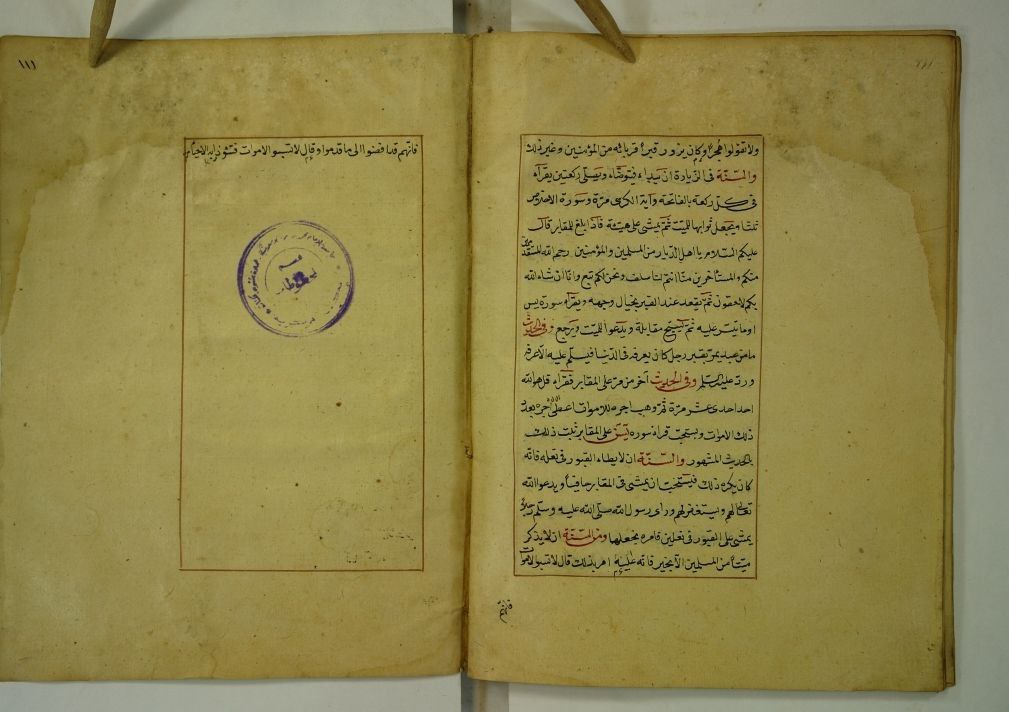 ولا تقولوا هجرا وكان يزور قبر اقربائه من المؤمنين وغير ذلك
والسنة فى الزيارة ان يبداء فيتوضاء ويصلى ركعتين يقراء
فى كل ركعة بالفاتحة وآية الكرسى مرة وسورة الاخلاص
ثلثا ويجعل ثوابها للميت ثم يمشى على هيئته فاذا بلغ المقابر قال
عليكم السلام يا اهل الديار من المسلمين والمؤمنين رحم الله المتقدمين
منكم والمستأخرين منا انتم لنا سلف ونحن لكم تبع وانا ان شاء الله
بكم لاحقون ثم يقعد عند القبر بحيال وجهه ويقراء سورة يس
او ما تيسر عليه ثم يسبح مقابلة ويدعوا للميت ويرجع وفى الحديث
ما من عبد يمر بقبر رجل كان يعرفه فى الدنيا فيسلم عليه الا عرفه
ورد عليه السلم وفى الحديث آخر من مر على المقابر فقراء قل هو الله
احد احدى عشر مرة ثم وهب اجره للاموات اعطى اجره بعدد
ذلك الاموات ويستحب قراءة سورة يس على المقابر ثبت ذلك
بالحديث المشهور والسنة ان لا يطاء القبور فى نعله فانه
كان يكره ذلك فيستحب ان يمشى فى المقابر حافيا ويدعوا الله
تعالى لهم ويستغفر لهم وراى رسول الله صلى الله عليه وسلم رجلا
يمشى على القبور فى نعلين فامره بخلعها ومن السنة ان لا يذكر
ميتا من المسلمين الا بخير فانه عليه امر بذلك قال لا تسبوا الاموات
فانهم
١١١
فانهم قد افضوا الى ما قدموا وقال لا تسبوا الاموات فتؤذوا به الاحياء